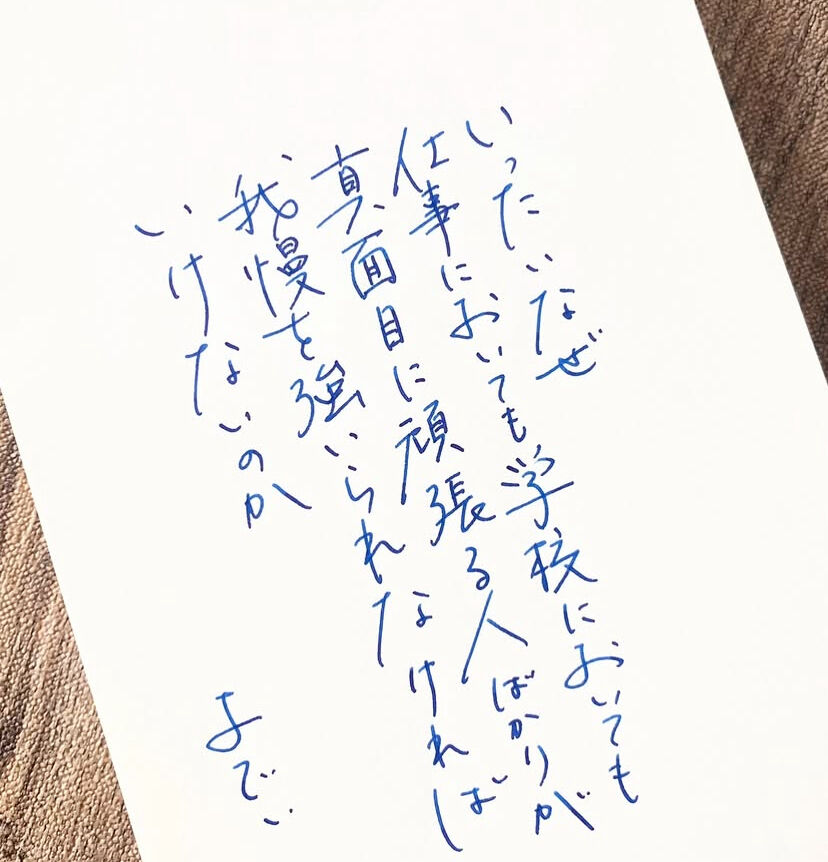 いったいなぜ
仕事においても学校においても
真面目に頑張る人ばかりが
我慢を強いられなければ
いけないのか
よでい